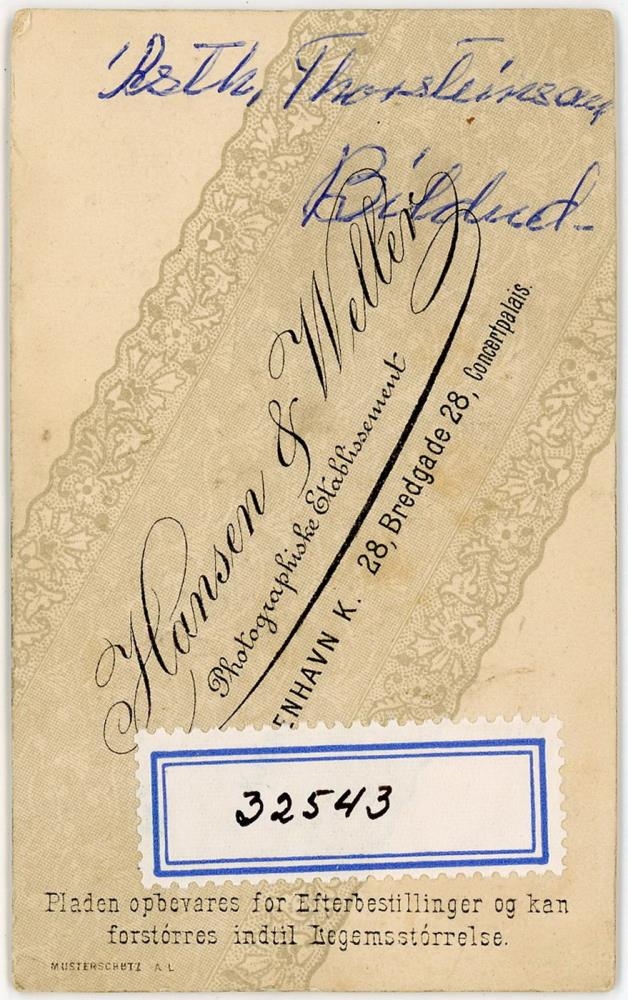 Ásth, Thorsteinsson
Bíldud.
Hansen & Weller
Photographiske Etablissement
ENHAVN K. 28, Bredgade 28, Concertpalais.
32543
Pladen opbevares for Efterbestillinger og kan
forstórres indtil Legemsstórrelse.
MUSTERSCHUTZ A L